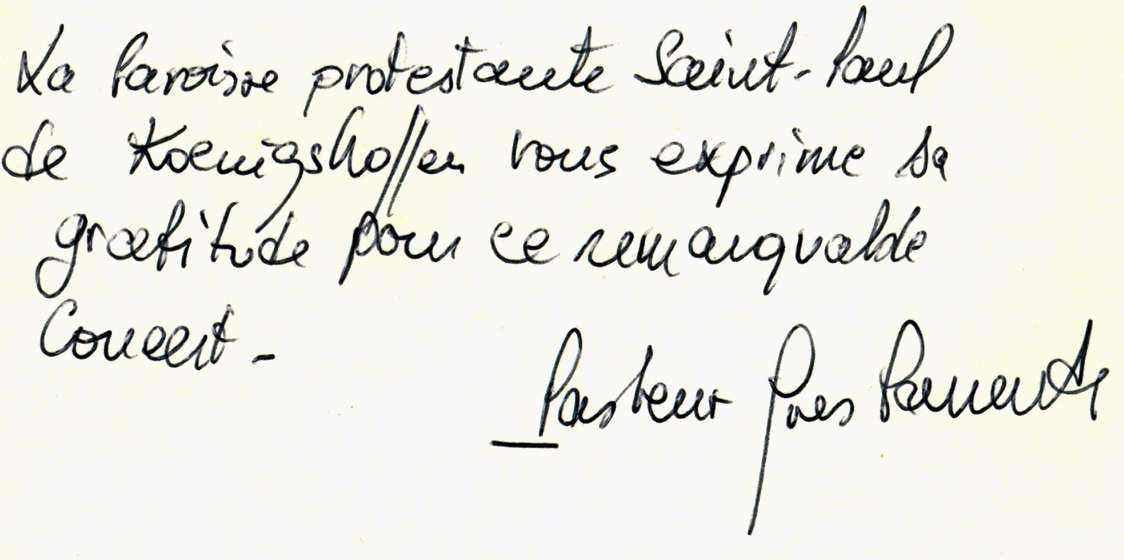 La Paroisse protestante Saint-Paul
de Koenigshoffen vous exprime sa
gratitude pour ce remarquable
Concert -
Pasteur Yves